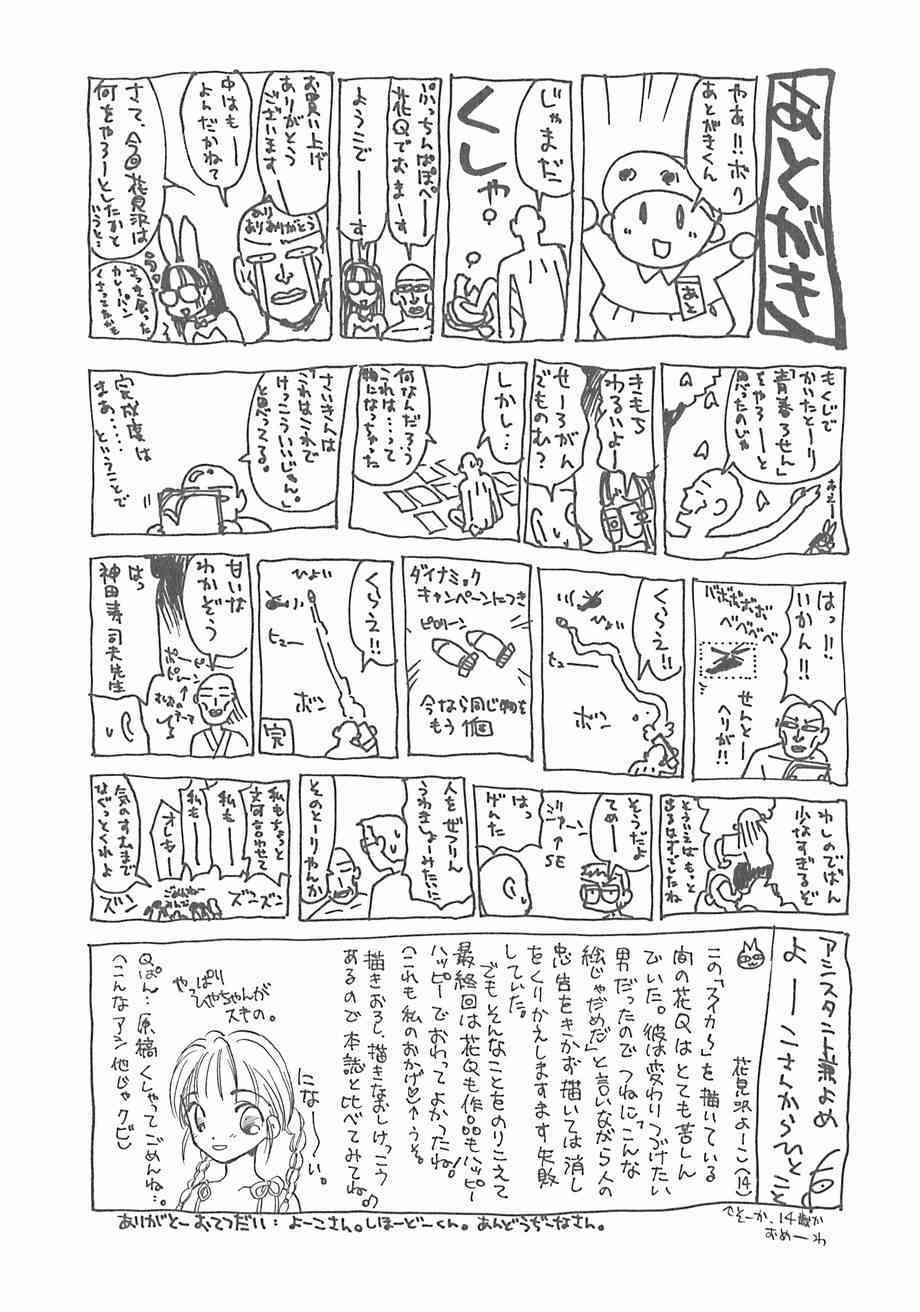 あとがき
やあ!!ボク
あとがきくん
あと
じゃまだ
くしゃ
ぷっちんぱぽぺーー
花Qでおまーす
ようこでーーす
お買い上げ
ありがとう
ございます
あり
ありありがとう
中はも
よんだかねて
さて、今回花見沢は
何をやろーとしたかと
いうと…
さっき食った
カレーパン
くさってたかも
もくじで
かいたとーり
「青春ろせん」
をやろーーと
思ったのじゃ
おえーー
きもち
わるいよー
せーろがん
でものむ?
しかし…
何なんだろう
これは…って
物になっちゃった
さいきんは
「これはこれで
けっこういいじゃん。」
と思ってる。
完成度は
まあ、・・・・
ということで
はっ!!
いかん!!
バボボボボボ
ベベベベ
せんとー
ヘリが!!
くらえ!!
ひょい
ヒューー
ボン
ダイナミック
キャンペーンにつき
ピロリーン
今なら同じ物を
もう1個
くらえ!!
ひょい
ヒュー
ボン
完
甘いな
わかぞう
はっ
神田寿司夫先生
わしのでばん
少なすぎるぞ
とういえばもっと
出るはずでしたね
そうだよ
てめー
ジャーン
↑
SE
はっ
げんた
人をぜつりん
うわきしょみたいに
そのとーりやんか
私もちょっと
文句言わせて
私もーー
私もーー
オレもーー
ごめんねー
みんな
気のすむまで
なぐっとくれよ
ズンズン
ズン
アシスタント兼よめ
よーーこさんからひとこと
花見沢よーこ(14)
この「スイカん」を描いている
間の花Qはとても苦しん
でいた。彼は変わりつづけたい
男だったのでつねに「こんな
絵じゃだめだ」と言いながら人の
忠告をきかず描いては消し
をくりかえしますます失敗
していた。
でもそんなことをのりこえて
最終回は花Qも作品もハッピー
ハッピーでおわってよかったね!
(これも私のおかげ♡)↑うそ。
描きおろし、描きなおしけっこう
あるので本誌と比べてみてね♪
になーーい。
やっぱり
ひやちゃんが
スキの。
Qぱん…原稿くしゃってごめんね…。
(こんなアシ 他じゃクビ)
ありがとー おてつだい:よーこさん。しほーどーくん。あんどうぢーなさん。
↑そーか、14歳か
おめーわ